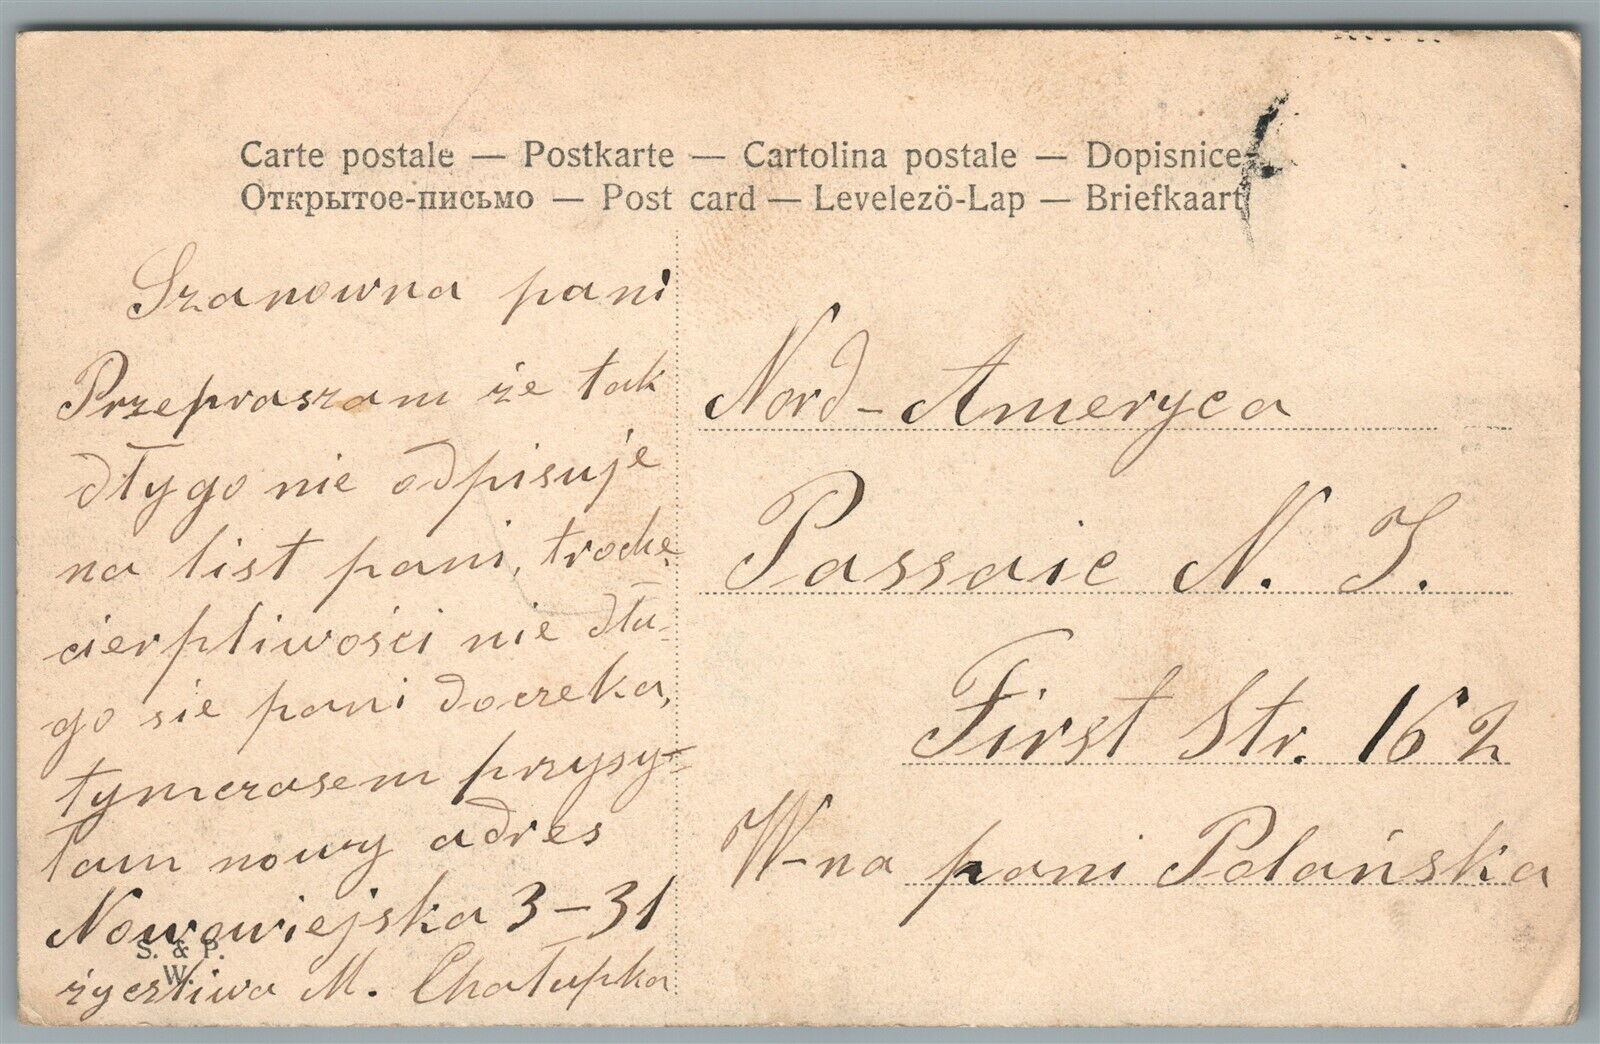 Carte postale — Postkarte — Cartolina postale — Dopisnice
Открытое-письмо — Post card — Levelezö-Lap — Briefkaart
Szanowna pani
Przepraszam że tak
dłygo nie odpisuje
na list pani, trochę
cierpliwości nie dłu-
go sie pani doczeka,
tymczasem przysy=
łam nowy adres
Nowowiejska 3-31
życzliwa M. Chałupka
S. & P.
W.
Nord-Ameryca
Passaic N. J.
First Str. 162
W-na pani Polańska